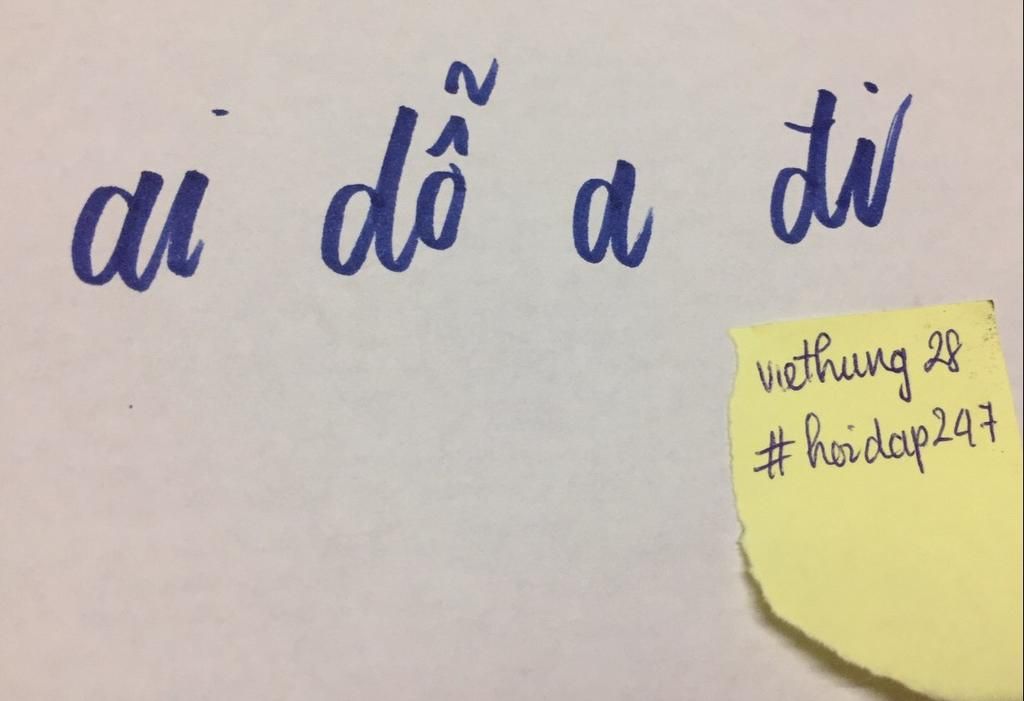 ai dỗ a đi
viethung 28
#hoidap247